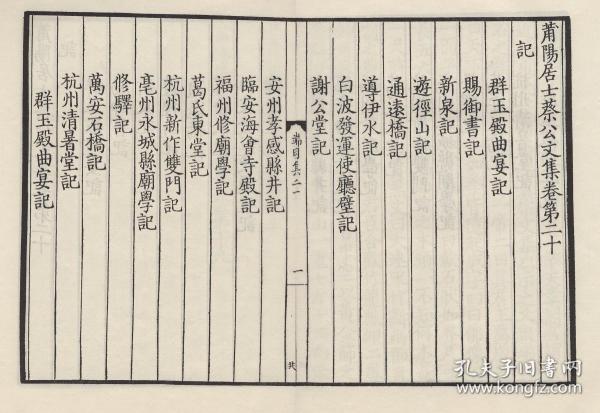 莆陽居士蔡公文集卷第二十
記
群玉殿曲宴記
賜御書記
新泉記
遊徑山記
通遠橋記
導伊水記
白波發運使廳壁記
謝公堂記
端目卷二一
一
安州孝感縣井記
臨安海會寺殿記
福州修廟學記
葛氏東堂記
杭州新作雙門記
亳州永城縣廟學記
修驛記
萬安石橋記
杭州清暑堂記
群玉殿曲宴記
孔夫子旧书网
www.kongfz.com